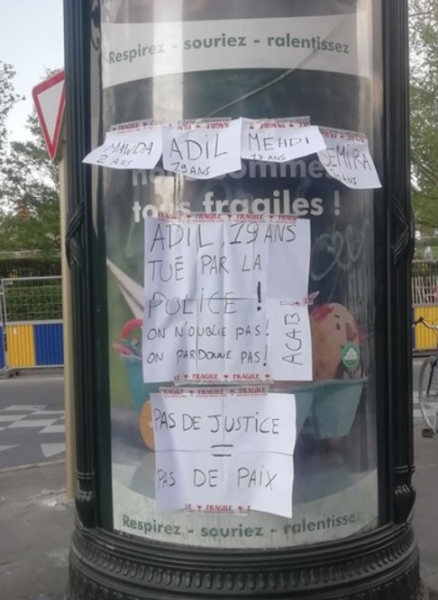 Respirez - souriez - ralentissez
MAWDA
2 ANS
ADIL
19 ANS
MEHDI
17 ANS
SEMIRA
ANS
sommes
tous fragiles !
FRAGILE
ADIL, 19 ANS
TUÉ PAR LA
POLICE !
ON N'OUBLIE PAS !
ON PARDONNE PAS !
ACAB!
FRAGILE FRAGILE
PAS DE JUSTICE
=
PAS DE PAIX
FRAGILE
Respirez - souriez - ralentissez